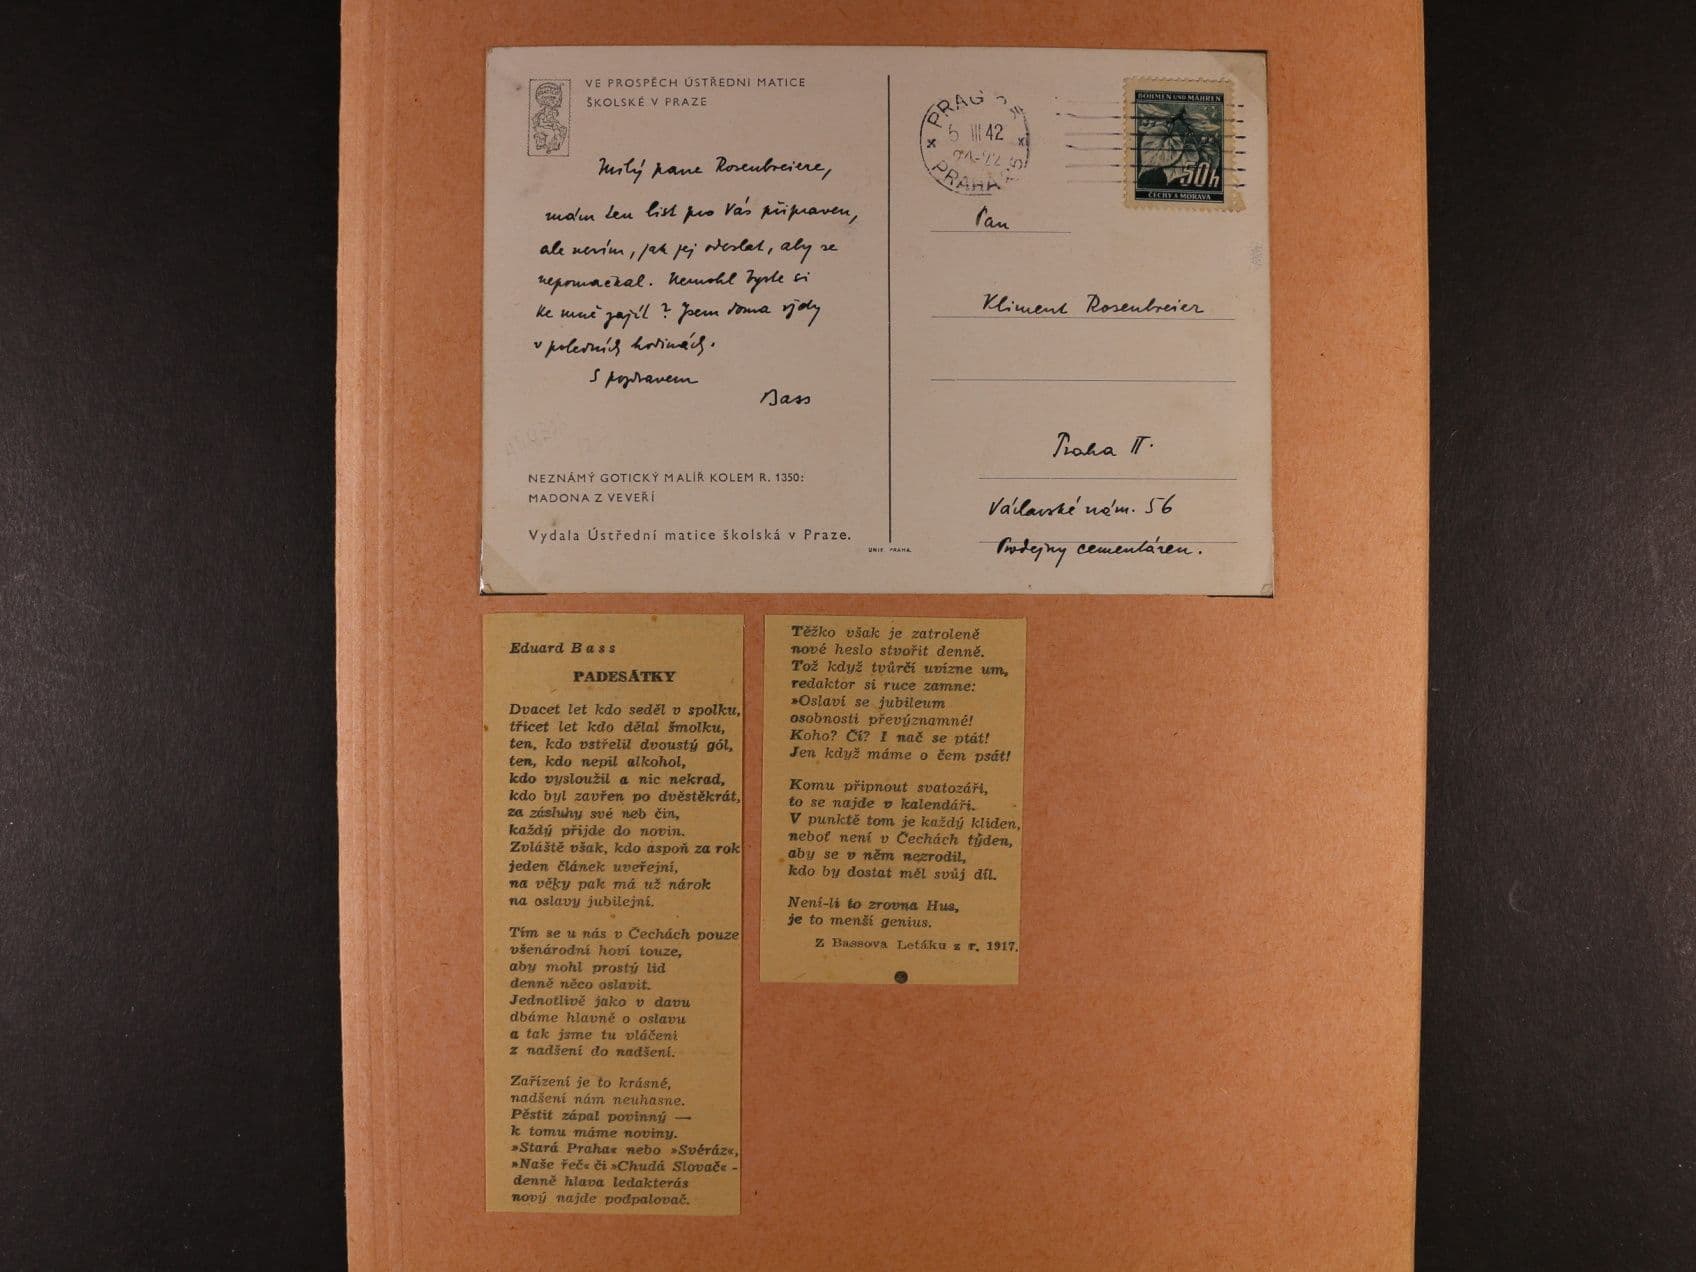 VE PROSPĚCH ÚSTŘEDNÍ MATICE
ŠKOLSKÉ V PRAZE
Milý pane Rosenbreiere,
mám ten list pro Vás připraven,
ale nevím, jak jej odeslat, aby se
nepomačkal. Nemohl byste si
ke mně zajít? Jsem doma vždy
v poledních hodinách.
S pozdravem
Bass
NEZNÁMÝ GOTICKÝ MALÍŘ KOLEM R. 1350:
MADONA Z VEVEŘÍ
Vydala Ústřední matice školská v Praze.
UNIE PRAHA.
PRAG
5 III 42
PRAHA
BÖHMEN UND MÄHREN
50h
ČECHY A MORAVA
Pan
Kliment Rosenbreier
Praha II.
Václavské nám. 56
Prodejny cementáren.
Eduard Bass
PADESÁTKY
Dvacet let kdo seděl v spolku,
třicet let kdo dělal šmolku,
ten, kdo vstřelil dvoustý gól,
ten, kdo nepil alkohol,
kdo vysloužil a nic nekrad,
kdo byl zavřen po dvěstěkrát,
za zásluhy své neb čin,
každý přijde do novin.
Zvláště však, kdo aspoň za rok
jeden článek uveřejní,
na věky pak má už nárok
na oslavy jubilejní.
Tím se u nás v Čechách pouze
všenárodní hoví touze,
aby mohl prostý lid
denně něco oslavit.
Jednotlivě jako v davu
dbáme hlavně o oslavu
a tak jsme tu vláčeni
z nadšení do nadšení.
Zařízení je to krásné,
nadšení nám neuhasne.
Pěstit zápal povinný —
k tomu máme noviny.
»Stará Praha« nebo »Svéráz«,
»Naše řeč« či »Chudá Slovač« -
denně hlava ledakterás
nový najde podpalovač.
Těžko však je zatroleně
nové heslo stvořit denně.
Tož když tvůrčí uvízne um,
redaktor si ruce zamne:
»Oslaví se jubileum
osobnosti převýznamné!
Koho? Čí? I nač se ptát!
Jen když máme o čem psát!
Komu připnout svatozáři,
to se najde v kalendáři.
V punktě tom je každý kliden,
neboť není v Čechách týden,
aby se v něm nezrodil,
kdo by dostat měl svůj díl.
Není-li to zrovna Hus,
je to menší genius.
Z Bassova Letáku z r. 1917.